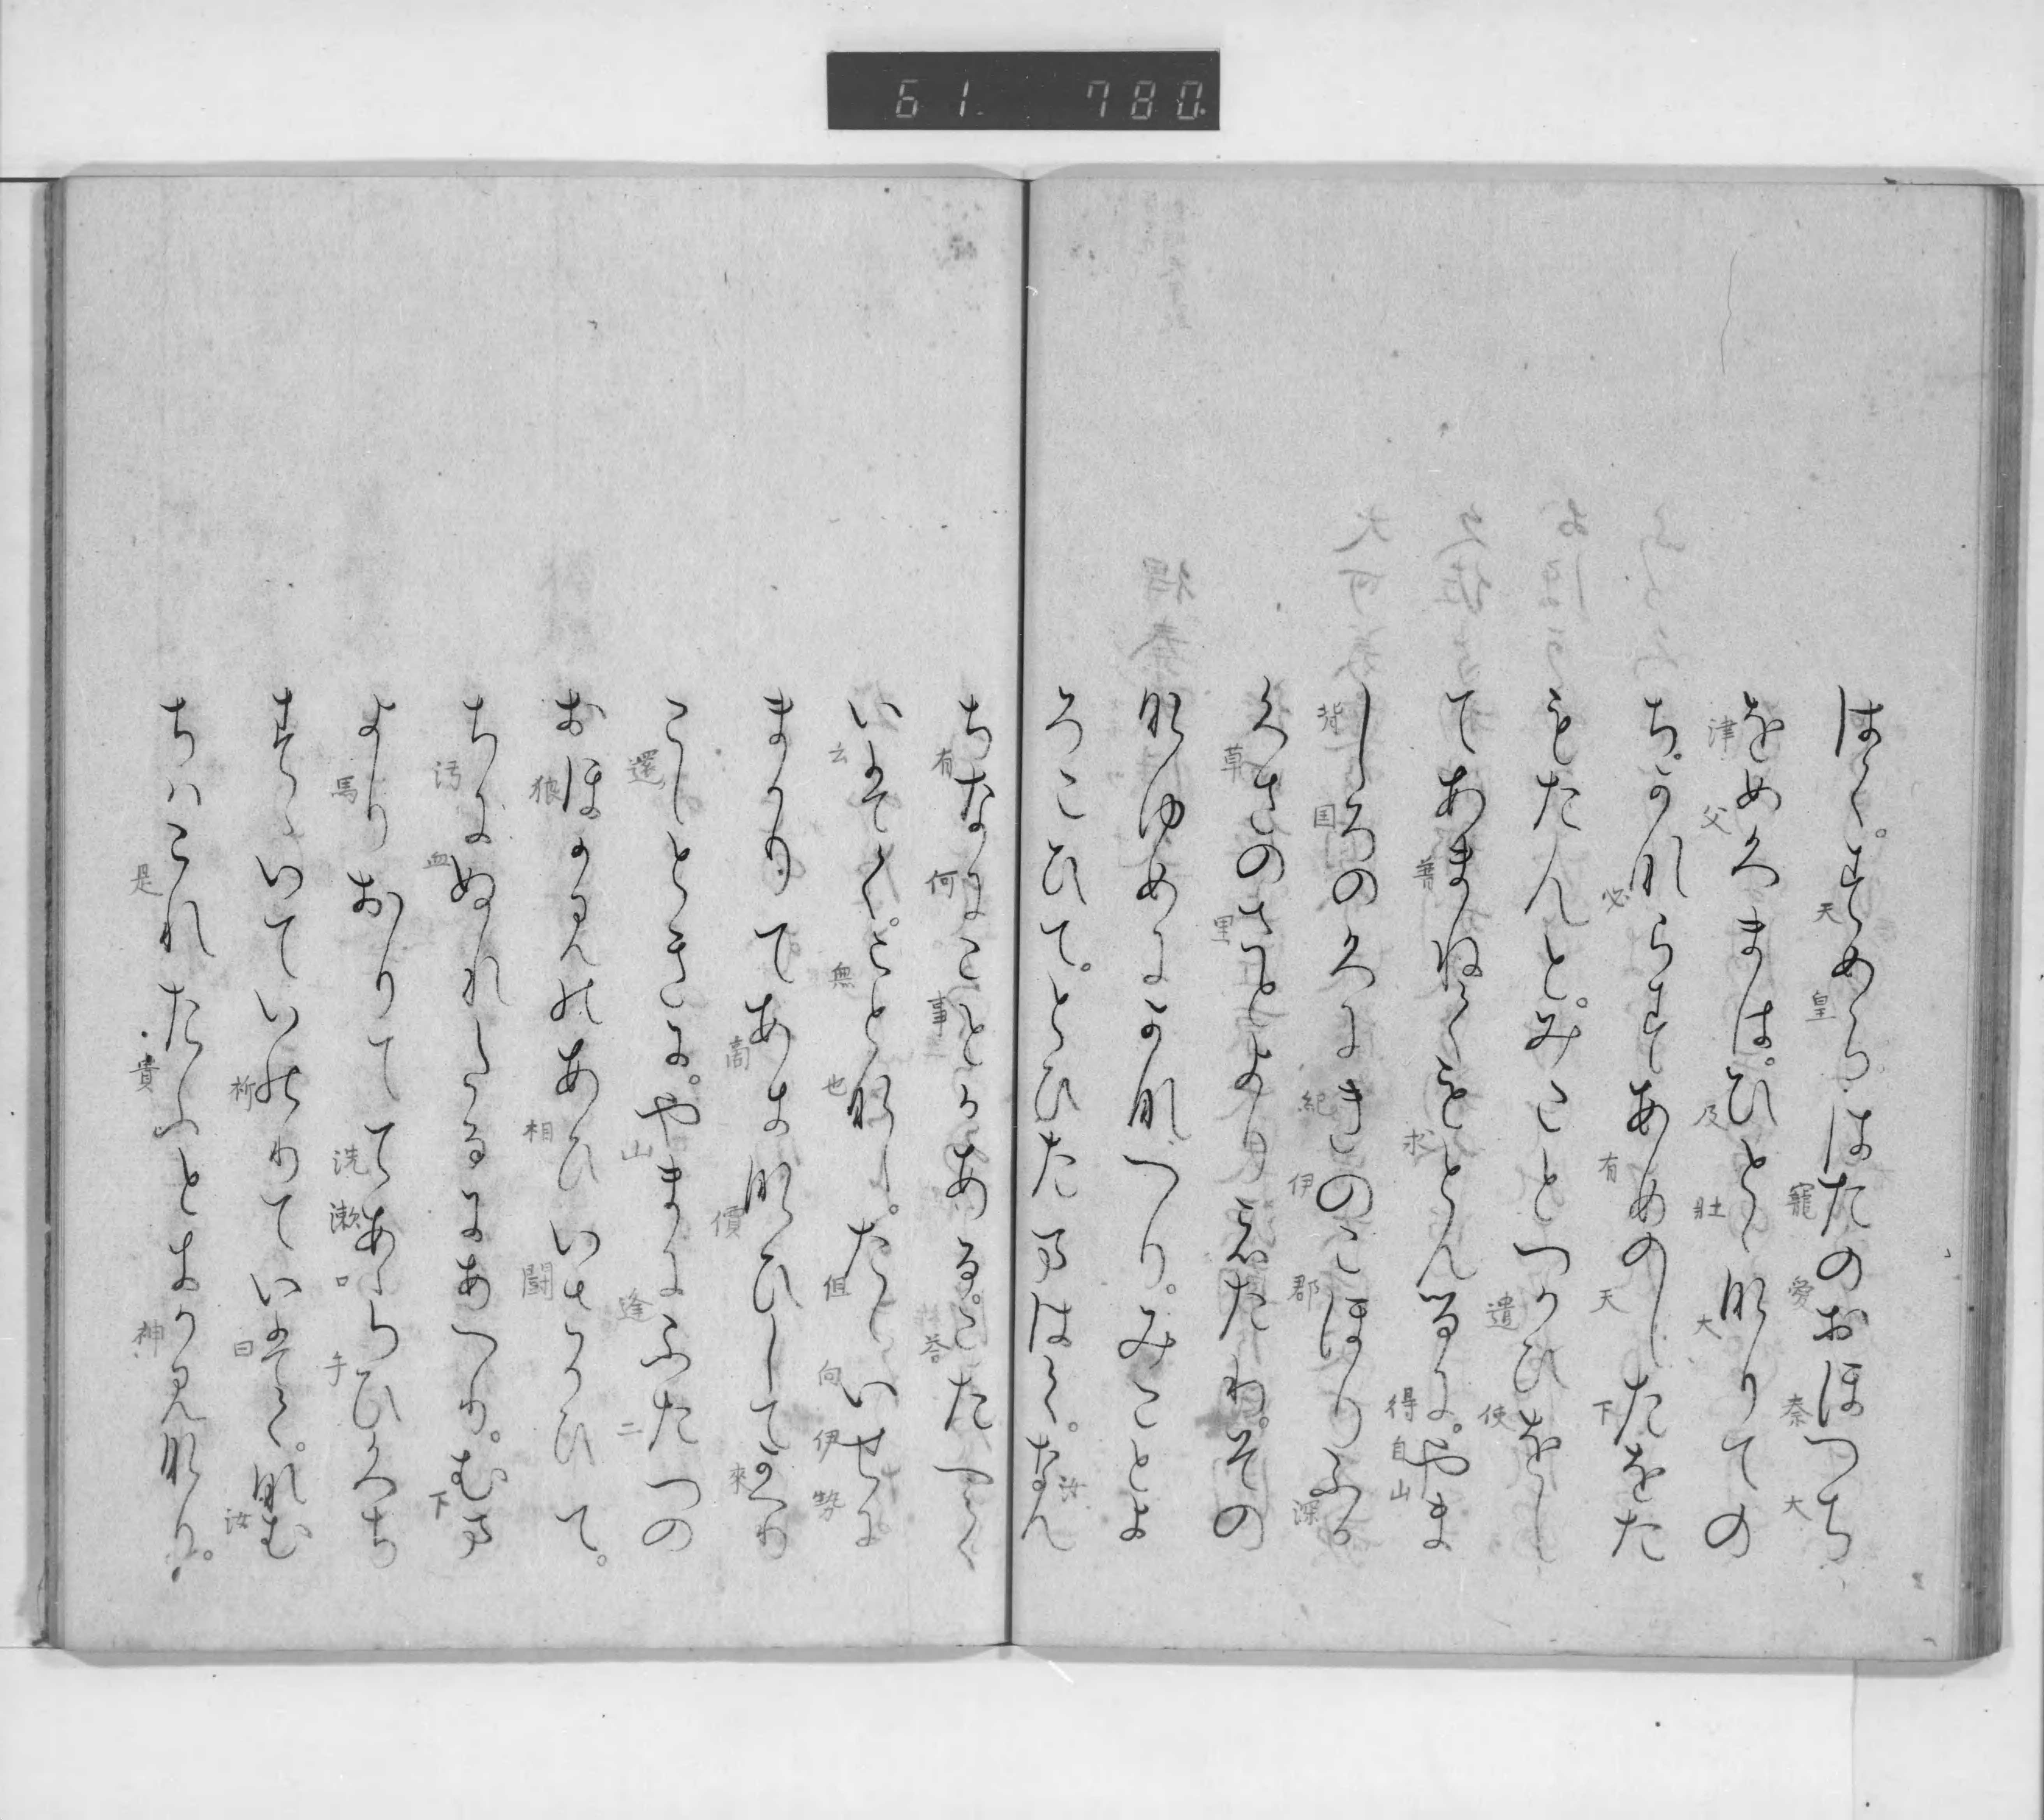 61. 780.
はく。すめら、はたのおほつち
天皇寵愛秦大
をめくまは。ひとゝなりての
津父及壮大
ち。かならすあめのしたをた
必有天下
もたんと。みことつかひをし
遣使
てあまねくもとんるに。やま
普求得自山
しろのくにきのこほりふか
背国紀伊郡深
くさのさとよりえたり。その
草里
なゆめにかなへり。みことよ
ろこひて。とひたまはく。なん
汝
ちなにことかある。こたへく
有何事答
いはく。ことなし。たゝいせに
云無也但向伊勢
まかりてあきなひしてかへり
商價來
こしときに。やまにふたつの
還山逢二
おほかみのあひいさかひて。
狼相闘
ちにぬれたるにあへり。むま
汚血下
よりおりててあらひくち
馬洗漱口手
すゝいていのりていはく。なむ
祈曰汝
ちハこれたふときかみなり。
是貴神